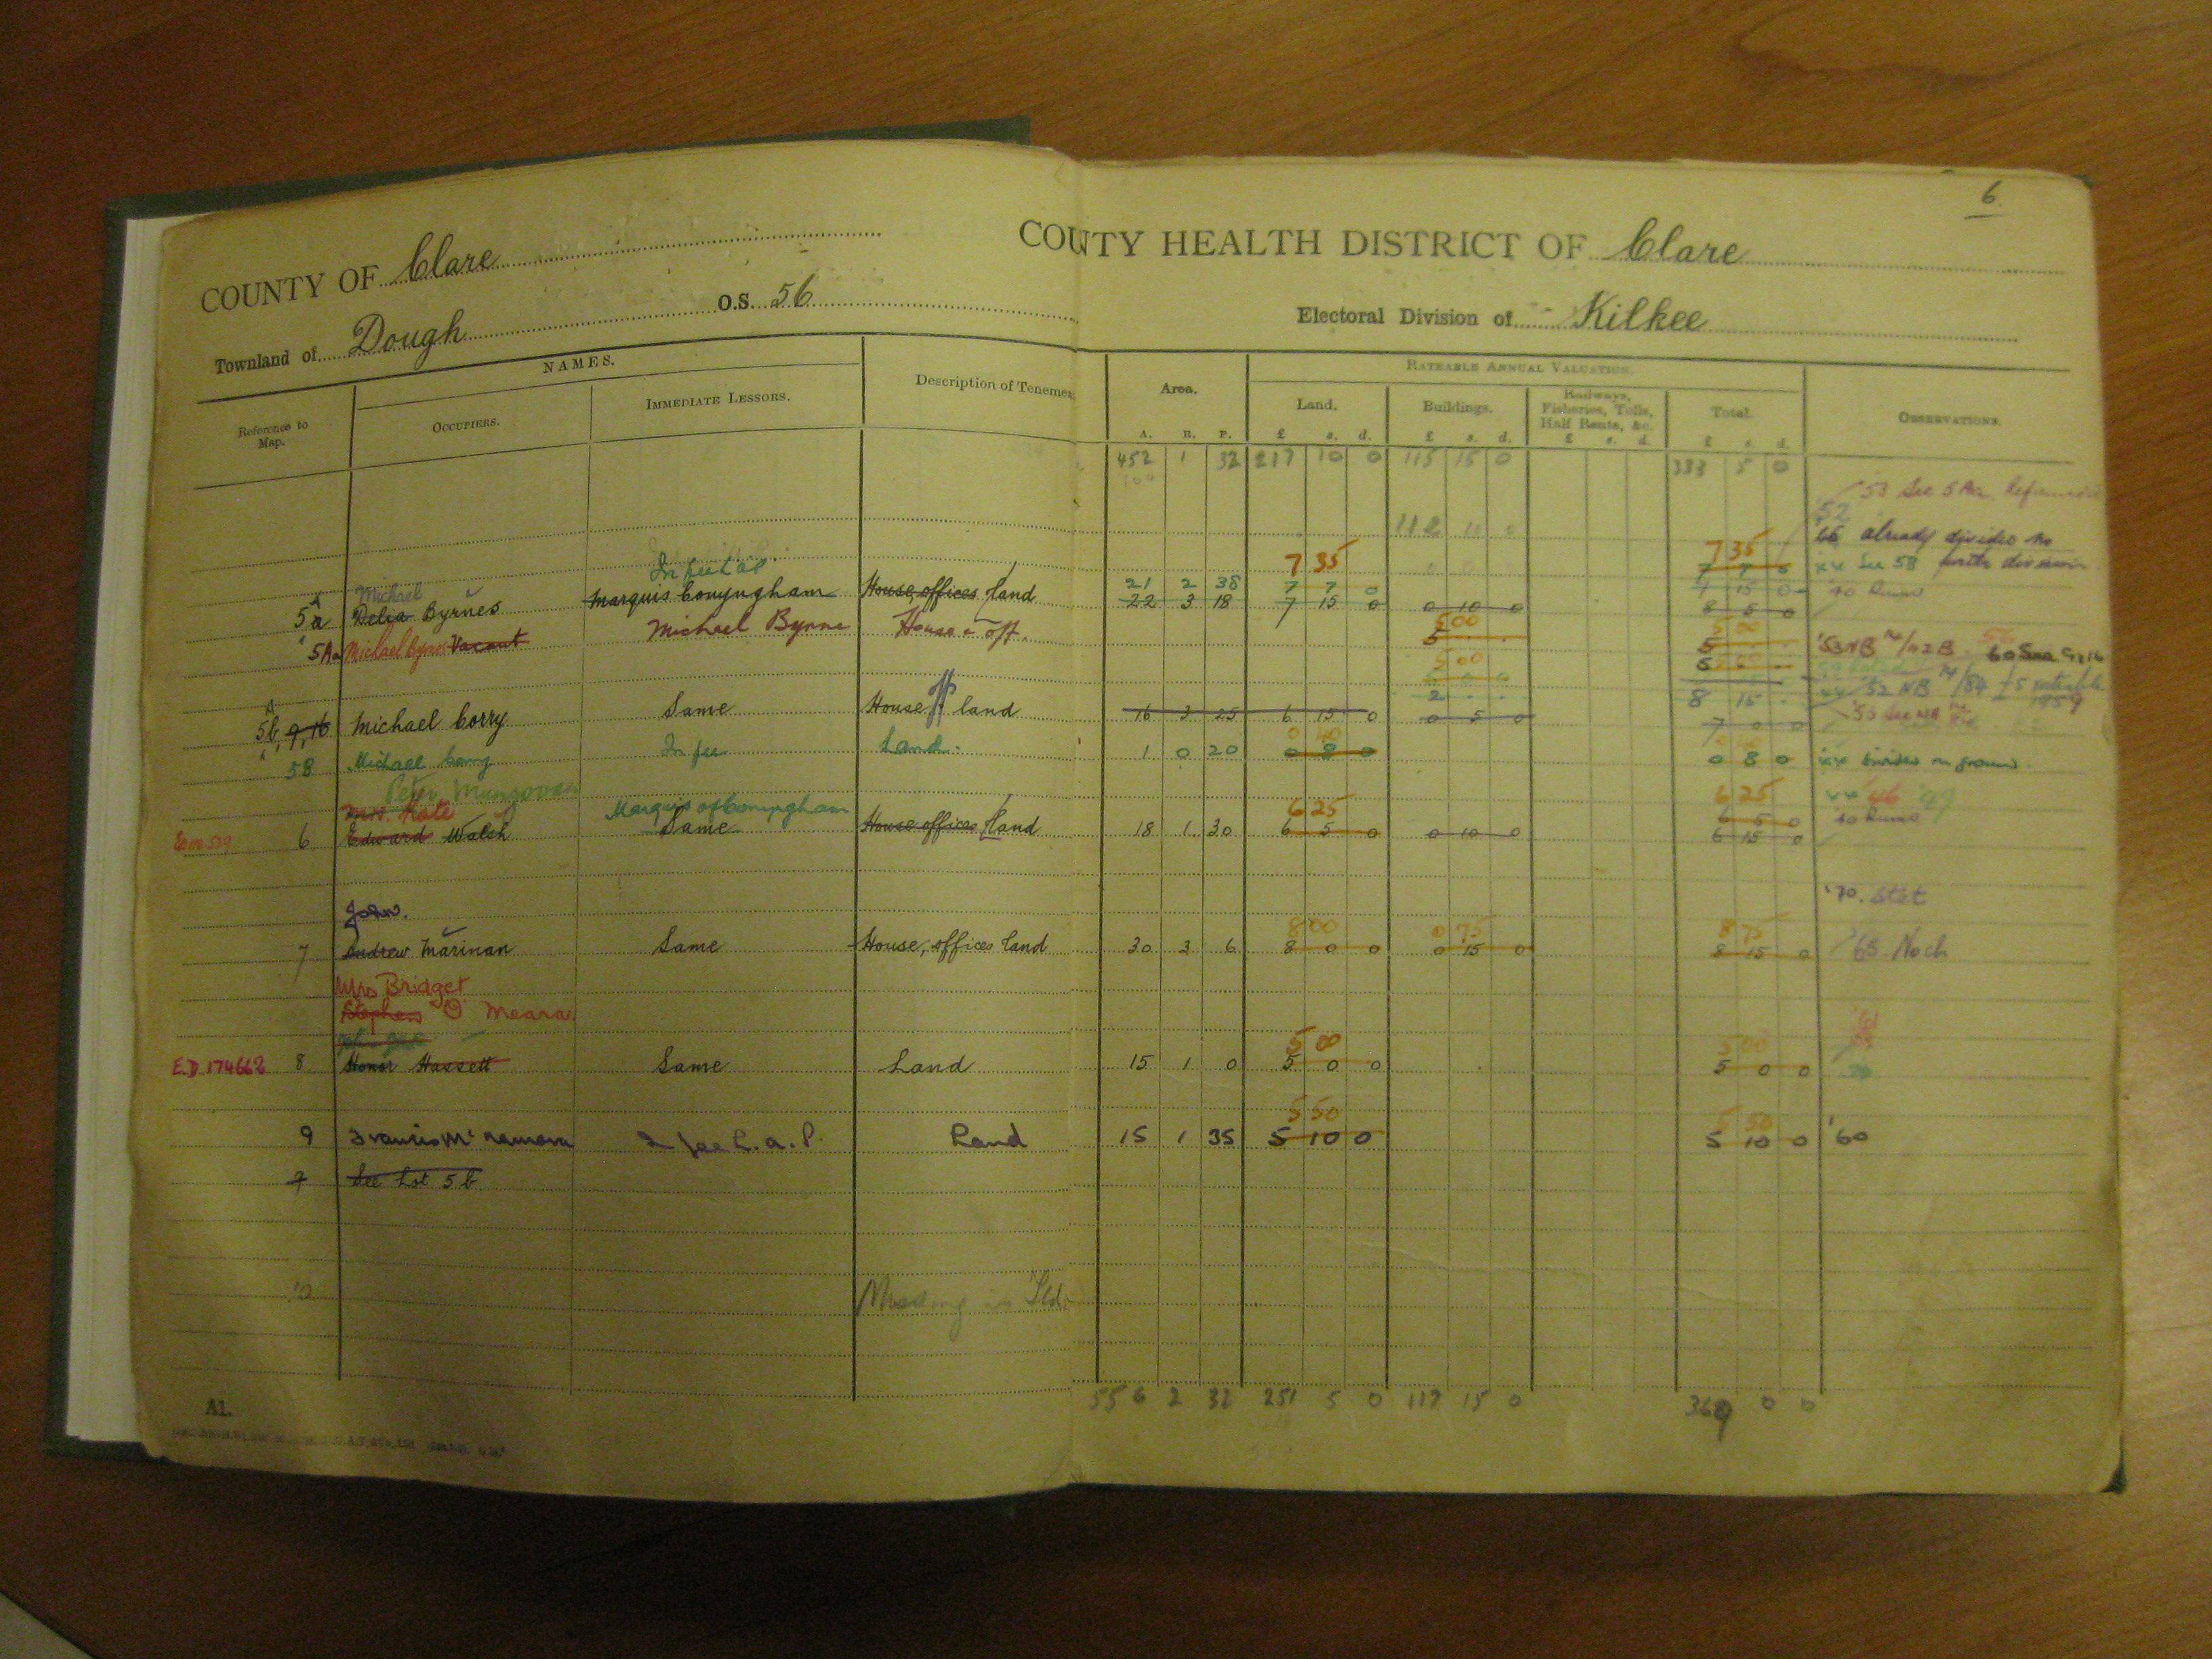 6
COUNTY OF Clare
COUNTY HEALTH DISTRICT OF Clare
Townland of Dough O.S. 56
Electoral Division of Kilkee
NAMES.
RATEABLE ANNUAL VALUATION.
Reference to Map. OCCUPIERS. IMMEDIATE LESSORS. Description of Tenemen Area. Land. Buildings. Railways, Fisheries, Tolls, Half Rents, &c. Total. OBSERVATIONS.
A. R. P. £ s. d. £ s. d. £ s. d. £ s. d.
452 1 32 217 10 0 115 15 0 333 5 0
'53 See 5Aa
112 10 0 '52
already divided no
In fee 7 35 7 35 xx See 58 further division
Michael 21 2 38 7 7 0 7 7 0
5a Delia Byrnes Marquis Conyngham House, offices, land 22 3 18 7 15 0 0 10 0 8 5 0
5 00 5 00
5Aa Michael Byrne Vacant Michael Byrne House & off. 5 5 60
5 00
A off 2 8 15
5b, 9, 16 Michael Corry Same House & land 16 3 25 6 15 0 0 5 0 7 0 0
0 40
5B Michael Corry In fee Land 1 0 20 0 8 0 0 8 0 xx divided on ground
Peter Mungovan
Mrs. Kate Marquis of Conyngham 6 25 6 25 xx '46 '49
6 5 0
6 Edward Walsh Same House offices land 18 1 30 6 5 0 0 10 0 6 15 0
'70. Stet
John. 8 00 0 75 8 75
7 Andrew Marinan Same House, offices land 30 3 6 8 0 0 0 15 0 8 15 0
Mrs Bridget
Stephen O Meara
5 00 5 00
E.D 174662 8 Honor Hassett Same Land 15 1 0 5 0 0 5 0 0
5 50 5 50
9 Francis McNamara In fee L.a.P. Land 15 1 35 5 10 0 5 10 0 '60
9 See Lot 5b
10 Missing
556 2 32 251 5 0 117 15 0 369 0 0
A1.